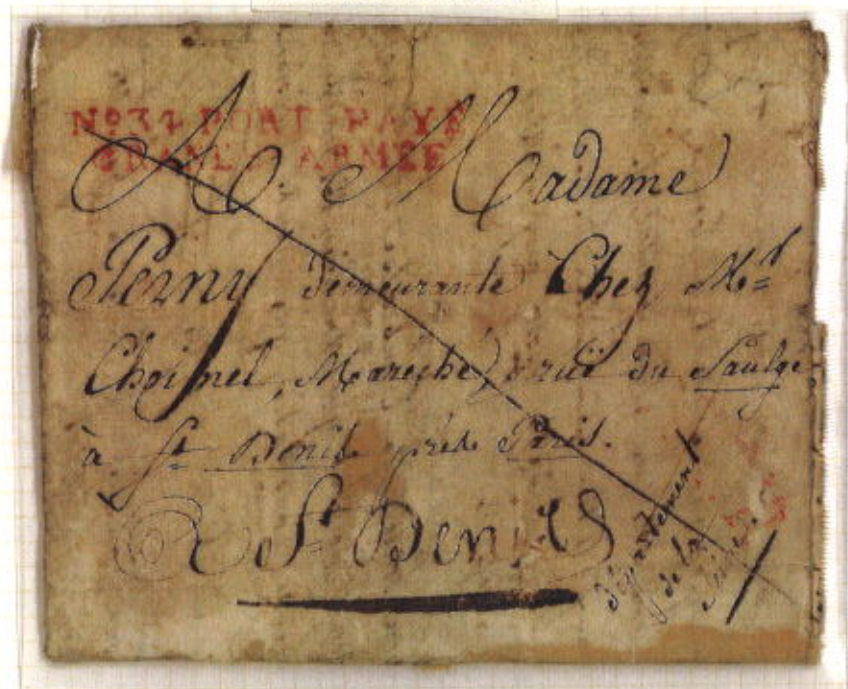 No 34 PORT PAYÉ
GRANDE ARMÉE
A Madame
Perny demeurante Chez Mr
Choisnel, Mareché, ruë du Saulge
à St Denis près Paris.
St Denis
département
de la
Seine.